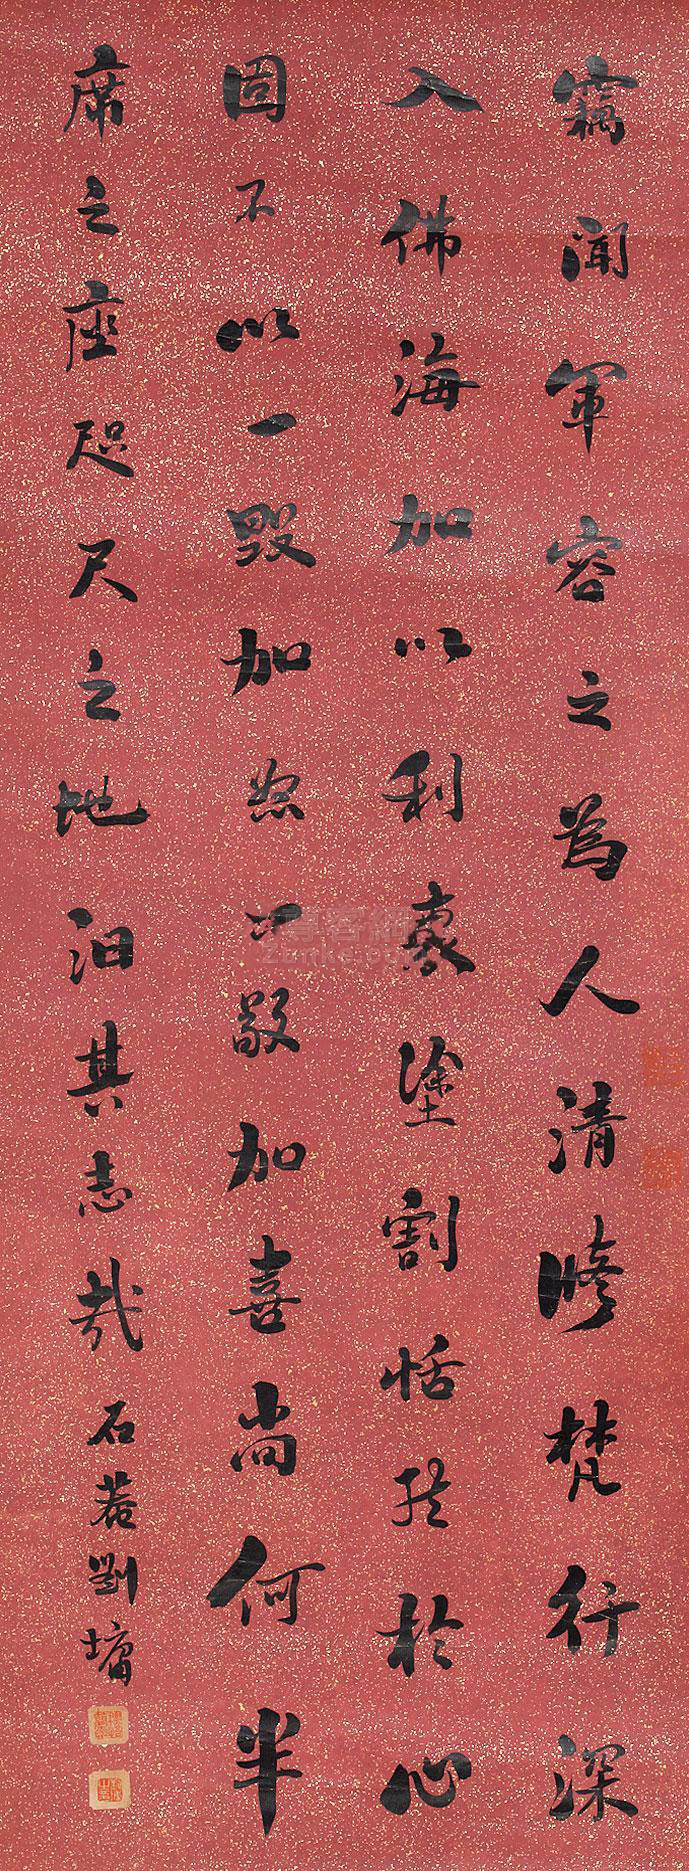 竊聞軍容之為人清修梵行深
入佛海加以利衰塗割恬然於心
固不以一毀加怒一敬加喜尚何半
席之座咫尺之地汩其志哉
石菴劉墉